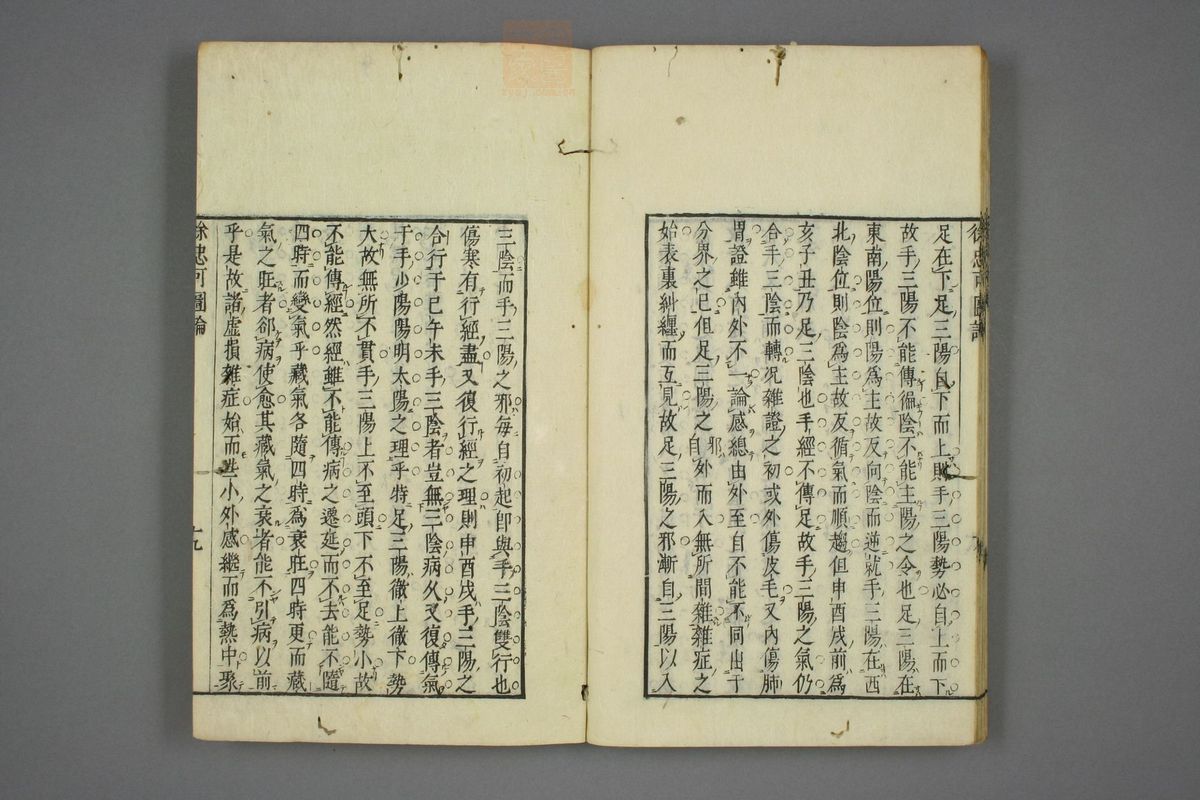 徐忠可圖論
足在下足三陽自下而上則手三陽勢必自上而下
故手三陽不能傳徧陰不能主陽之令也足三陽在
東南陽位則陽為主故反向陰而逆就手三陽在西
北陰位則陰為主故反循氣而順趨但申酉戌前為
亥子丑乃足三陰也手經不傳足故手三陽之氣仍
合手三陰而轉况雜證之初或外傷皮毛又內傷肺
胃證雖內外不一論感總由外至自不能不同出于
分界之已但足三陽之邪自外而入無所間雜雜症之
始表裏糾纏而互見故足三陽之邪漸自三陽以入
三陰而手三陽之邪每自初起卽與手三陰雙行也
傷寒有行經盡又復行經之理則申酉戌手三陽之
合行于巳午未手三陰者豈無三陰病久又復傳氣
于手少陽陽明太陽之理乎特足三陽徹上徹下勢
大故無所不貫手三陽上不至頭下不至足勢小故
不能傳經然經雖不能傳病之遷延而不去能不隨
四時而變氣乎藏氣各隨四時為衰旺四時更而藏
氣之旺者郤病使愈其藏氣之衰者能不引病以前
乎是故諸虛損雜症始而些小外感繼而為熱中聚
徐忠可圖論
十九